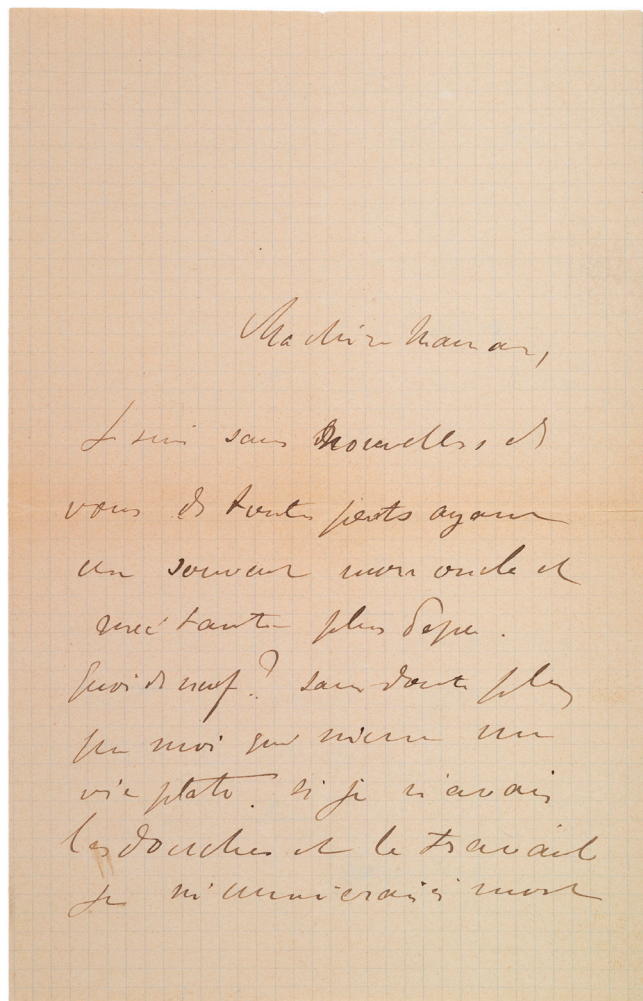 Ma chère Maman,
Je suis sans nouvelles de
vous de toutes parts ayant
vu souvent mon oncle et
ma tante plus Pépé.
Quoi de neuf? sans doute plus
que moi qui mène une
vie plate. si je n'avais
les douches et le travail
je m'ennuierais à mort